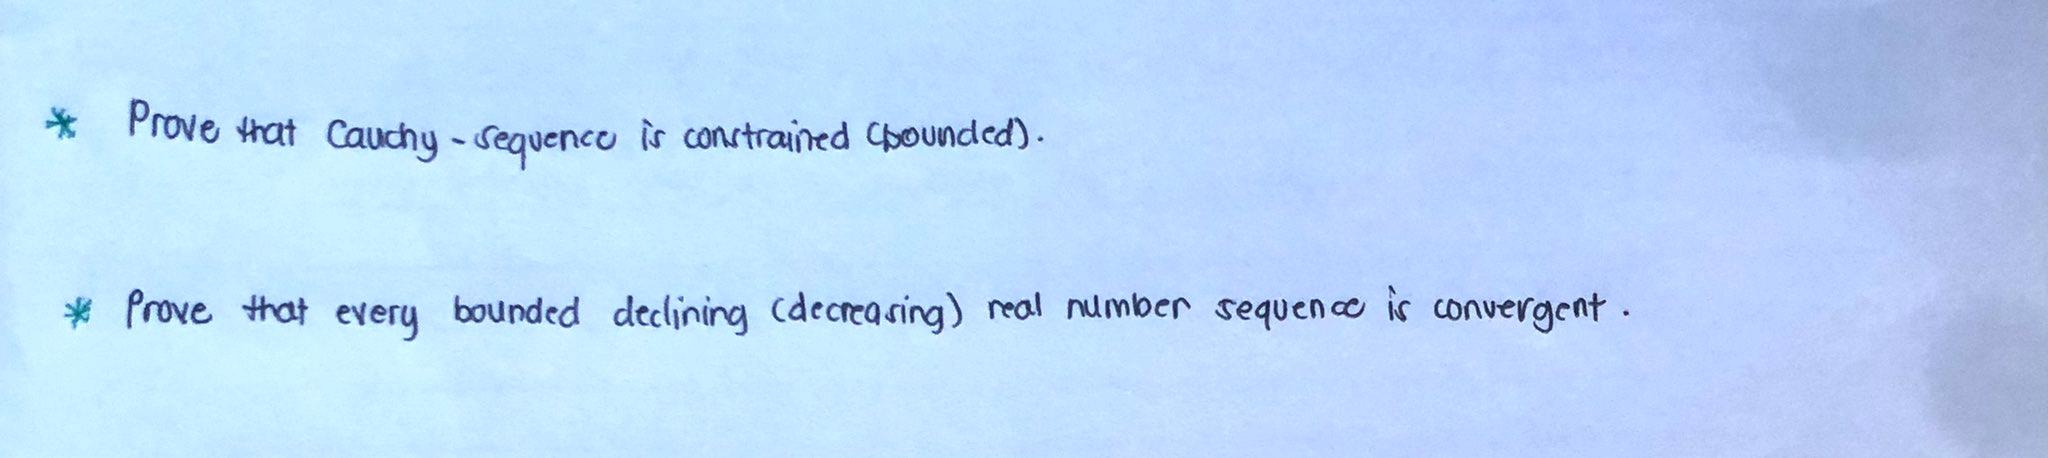 * Prove that Cauchy-sequence is constrained (bounded).
* Prove that every bounded declining (decreasing) real number sequence is convergent.